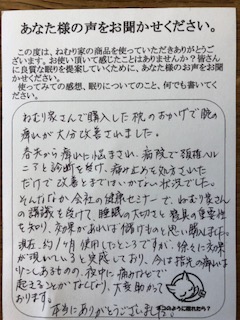 あなた様の声をお聞かせください。
この度は、ねむり家の商品を使っていただきありがとうご
ざいます。お使い頂いて感じたことはありませんか？皆さん
に良質な眠りを提案していくために、あなた様のお声をお聞
かせください。
使ってみての感想、眠りについてのこと、何でも書いてく
ださい。
ねむり家さんで購入した枕のおかげで腕の
痛みが大分改善されました。
春先から痛みに悩まされ、病院で頚椎ヘル
ニアと診断を受け、痛み止めを処方された
だけで改善とまではいかない状況でした。
そんななか会社の健康セミナーで、ねむり家さん
の講義を受けて、睡眠の大切さと寝具の重要性
を知り、効果があれば儲けものと思い購入しました。
現在、約1ヶ月使用したところですが、徐々に効果
が現れていると実感しており、今は指先の痛みは
少しあるものの、夜中に痛みなどで
起きることがなくなり、大変助かって
おります。
本当にありがとうございました。
ネコのように眠れたら？